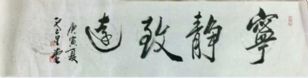 寧靜致遠
庚寅夏